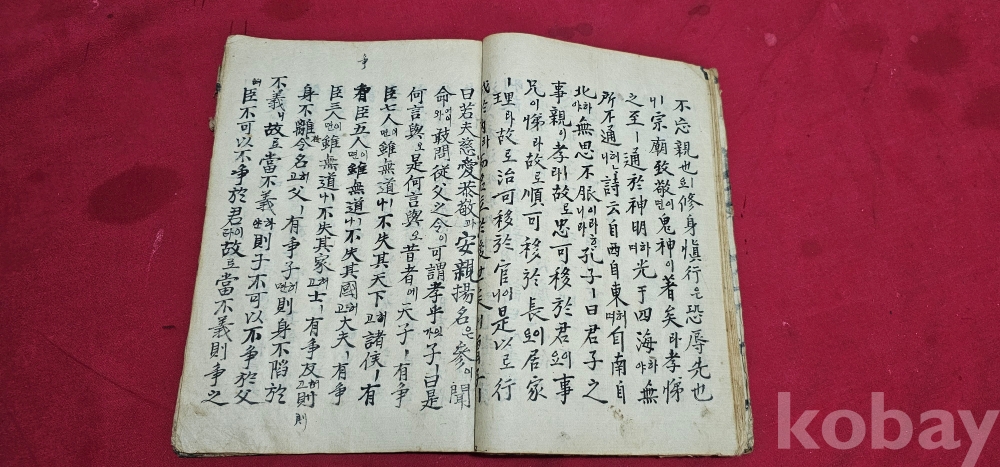 不忘親也ㅣ오修身愼行은恐辱先也
ㅣ니宗廟致敬이면鬼神이著矣라孝悌
之至ㅣ通於神明하며光于四海하야無
所不通이니詩云自西自東허며自南自
北하야無思不服이라하니라孔子ㅣ曰君子之
事親이孝라故로忠可移於君이오事
兄이悌라故로順可移於長이오居家
ㅣ理라故로治可移於官이니是以로行
曰若夫慈愛恭敬과安親揚名은參이聞
命와敢問從父之令이可謂孝乎가子ㅣ曰是
何言與오是何言與오昔者에天子ㅣ有争
臣七人이면雖無道나不失其天下허고諸侯ㅣ有
臣五人이면雖無道나不失其國허고大夫ㅣ有争
臣三人이면雖無道나不失其家허고士ㅣ有争友則
身不離令名허고父ㅣ有争子허면則身不陷於
不義니故로當不義하야則子不可以不争於父
허며臣不可以不争於君이라故로當不義則争之
争
則
kobay